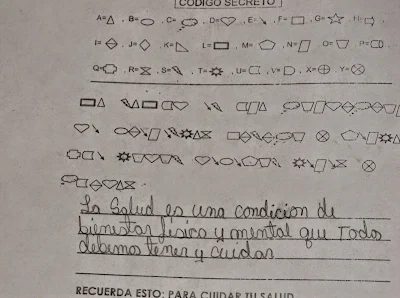 CODIGO SECRETO
A= , B= , C= , D= , E= , F= , G= , H=
I= , J= , K= , L= , M= , N= , O= , P=
Q= , R= , S= , T= , U= , V= , X= , Y=
La Salud es una condicion de
bienestar fisico y mental que Todos
debemos tener y cuidar
RECUERDA ESTO: PARA CUIDAR TU SALUD